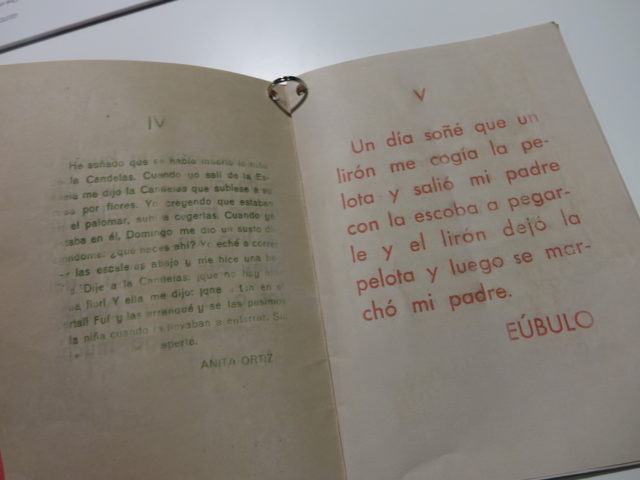 IV
He soñado que se había muerto la niña
la Candelas. Cuando yo salí de la Es-
me dijo la Candelas que subiese a
por flores. Yo creyendo que estaban
el palomar, subí a cogerlas. Cuando yo
en él, Domingo me dio un susto
¿qué haces ahí? Yo eché a correr
las escaleras abajo y me hice una
Dije a la Candelas: ¡que no hay
flor! Y ella me dijo: ¡que en el
Fuí y las arranqué y se las pusimos
la niña cuando la llevaban a enterrar.
ANITA ORTIZ
V
Un día soñé que un
lirón me cogía la pe-
lota y salió mi padre
con la escoba a pegar-
le y el lirón dejó la
pelota y luego se mar-
chó mi padre.
EÚBULO